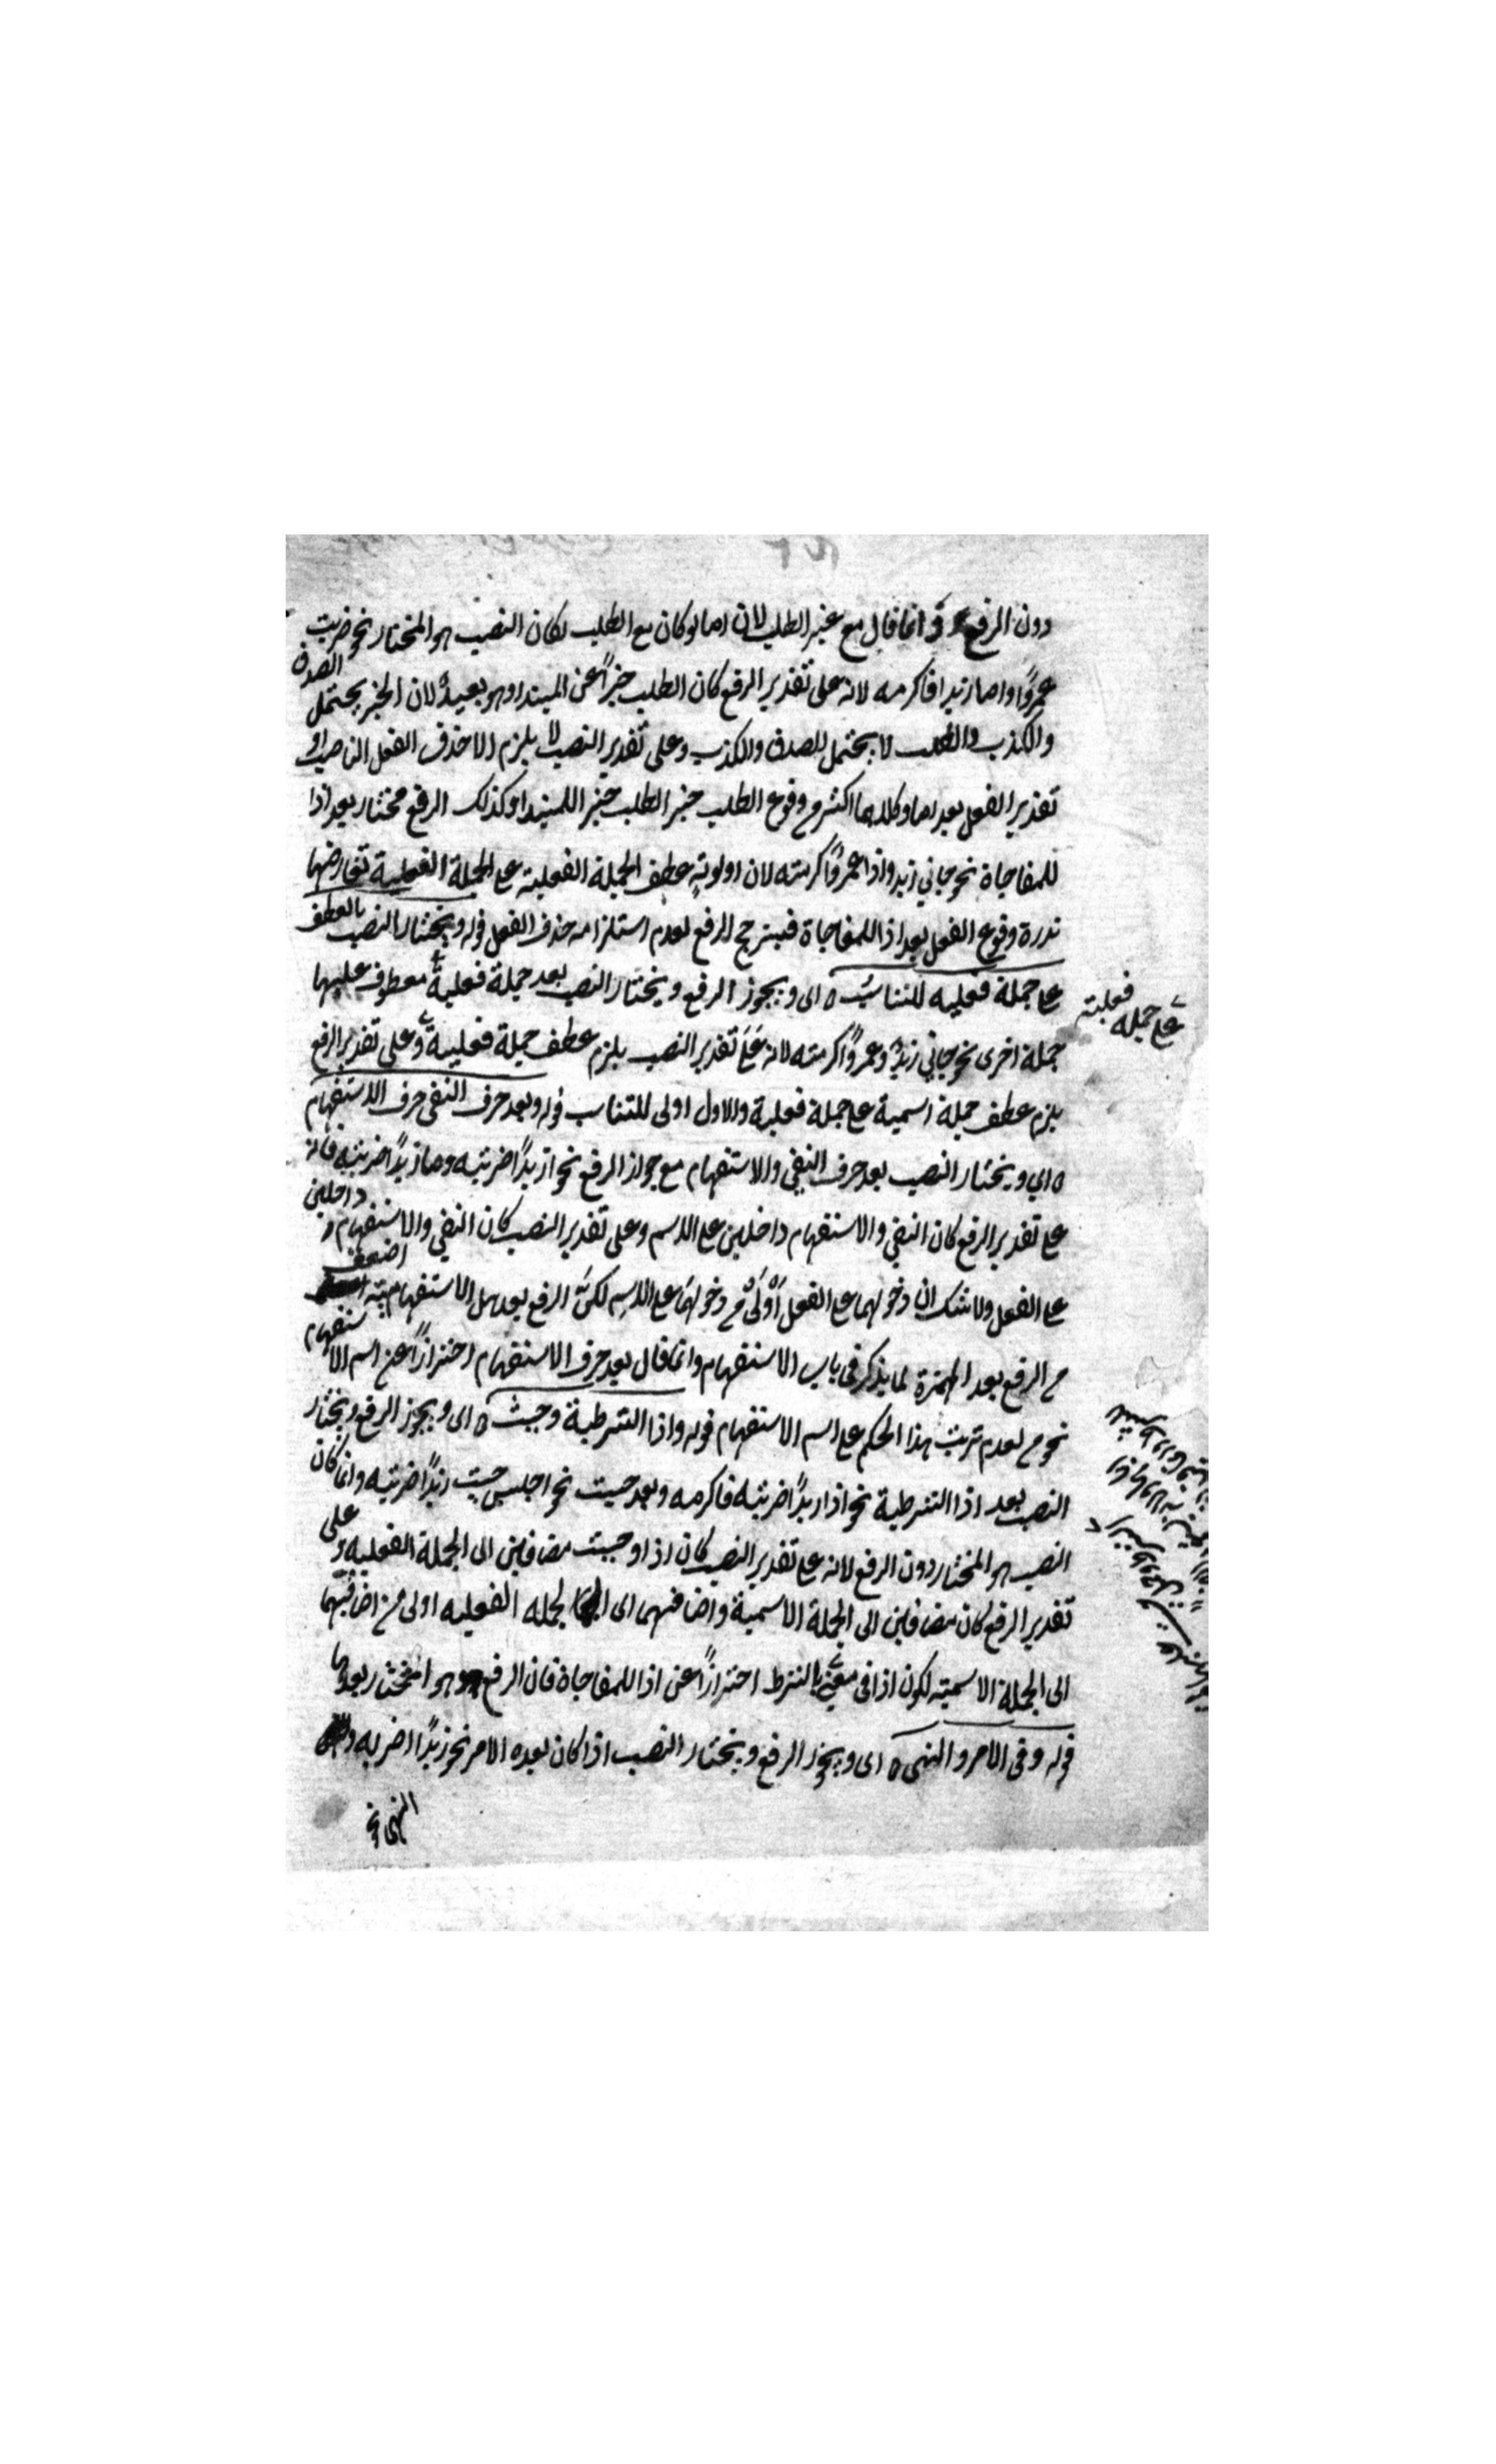 دون الرفع وانما قال مع غير الطلب لان اما لو كان مع الطلب لكان النصب هو المختار نحو ضربت
عمروًا واما زيدا فاكرمه لانه على تقدير الرفع كان الطلب خبرًا عن المبتدا وهو بعيد لان الخبر يحتمل الصدق
والكذب والطلب لا يحتمل الصدق والكذب وعلى تقدير النصب لا يلزم الا حذف الفعل الناصب او
تقدير الفعل بعد اما وكلاهما اكثر من وقوع الطلب خبر الطلب خبر اللمبتدا وكذلك الرفع مختار بعد اذا
للمفاجاة نحو جاني زيد واذا عمروًا اكرمته لان اولوية عطف الجملة الفعلية على الجملة الفعلية تعارضها
ندرة وقوع الفعل بعد اذا للمفاجاة فيترجح الرفع لعدم استلزامه حذف الفعل قوله ويختار النصب بالعطف
على جملة فعليه للتناسب ه اى ويجوز الرفع ويختار النصب بعد جملة فعلية معطوف عليها
جملة اخرى نحو جاني زيد وعمروًا اكرمته لانه على تقدير النصب يلزم عطف جملة فعلية وعلى تقدير الرفع
على جمله فعلية
يلزم عطف جملة اسمية على جملة فعلية والاول اولى للتناسب قوله وبعد حرف النفى حرف الاستفهام
ه اي ويختار النصب بعد حرف النفي والاستفهام مع جواز الرفع نحو ازيدًا ضربته وما زيدًا ضربته فانه
على تقدير الرفع كان النفي والاستفهام داخلين على الاسم وعلى تقدير النصب كان النفي والاستفهام داخلين
على الفعل ولاشك ان دخولهما على الفعل اولى من دخولهما على الاسم لكن الرفع بعد هل الاستفهامية اضعف
من الرفع بعد الهمزة لما يذكر فى باب الاستفهام وانما قال بعد حرف الاستفهام احترازًا عن اسم الاستفهام
نحو من لعدم ترتب هذا الحكم على اسم الاستفهام قوله واذا الشرطية وحيث ه اى ويجوز الرفع ويختار
النصب بعد اذا الشرطية نحو اذا زيدًا ضربته فاكرمه وبعد حيث نحو اجلس حيث زيدًا ضربته وانما كان
النصب هو المختار دون الرفع لانه على تقدير النصب كان اذا وحيث مضافين الى الجملة الفعلية وعلى
تقدير الرفع كان مضافين الى الجملة الاسمية واضافتهما الى الجمله الفعليه اولى من اضافتهما
الى الجملة الاسمية لكون اذا فى معنى الشرط احترازًا عن اذا للمفاجاة فان الرفع هو المختار بعدها
قوله وفى الامر والنهى ه اى ويجوز الرفع ويختار النصب اذا كان بعده الامر نحو زيدًا اضربه و
النهى نحو